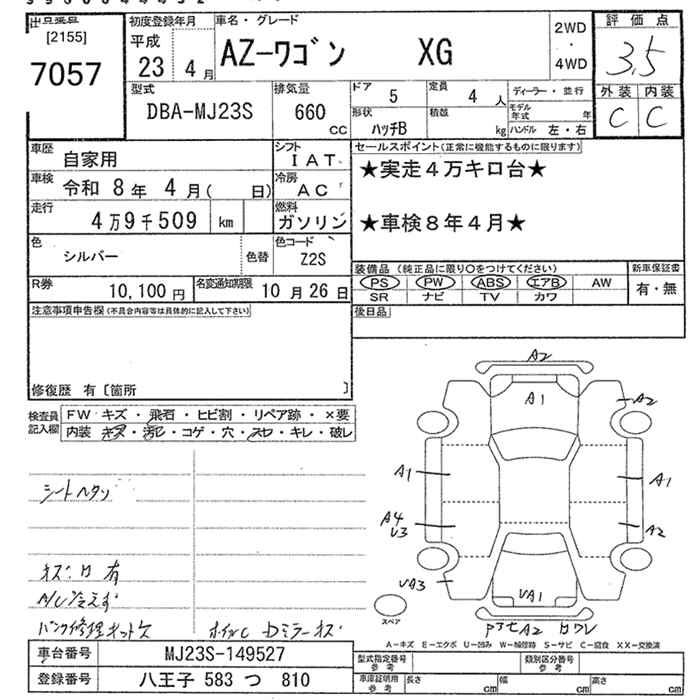 出品番号 初度登録年月 車名・グレード 2WD 評価点
[2155] 平成 AZ-ワゴン XG ・ 3.5
7057 23 4月 4WD
外装 内装
型式 排気量 ドア 5 定員 4人 ディーラー・並行 C C
DBA-MJ23S 660 モデル年式 年
cc 形状 ハッチB 積載 kg ハンドル 左・右
車歴 自家用 シフト IAT セールスポイント(正常に機能するものに限ります)
車検 令和 8年 4月( 日) 冷房 AC ★実走4万キロ台★
走行 4万9千509 km 燃料 ガソリン ★車検8年4月★
色 シルバー 色替 色コード Z2S
装備品 (純正品に限り〇をつけてください) 新車保証書
R券 10,100円 名変通知期限 10月26日 PS PW ABS エアB AW 有・無
SR ナビ TV カワ
注意事項申告欄(不具合内容等は具体的に記入して下さい) 後日品
修復歴 有〔箇所 〕
検査員記入欄 FW キズ・飛石・ヒビ割・リペア跡・×要
内装・キズ・汚レ・コゲ・穴・スレ・キレ・破レ
A2
A1 A2
A1 A1
A4 A2
U3
UA3 UA1
シートヘタリ
キズ凹有
A/C冷えず
パンク修理キットケ ホイルC Dミラーキズ
スペア
A2 ワレ
A-キズ E-エクボ U-凹み W-補修跡 S-サビ C-腐食 XX-交換済
車台番号 MJ23S-149527 型式指定番号参考 類別区分番号参考
登録番号 八王子 583 つ 810 車庫証明用参考 長さ cm 幅 cm 高さ cm